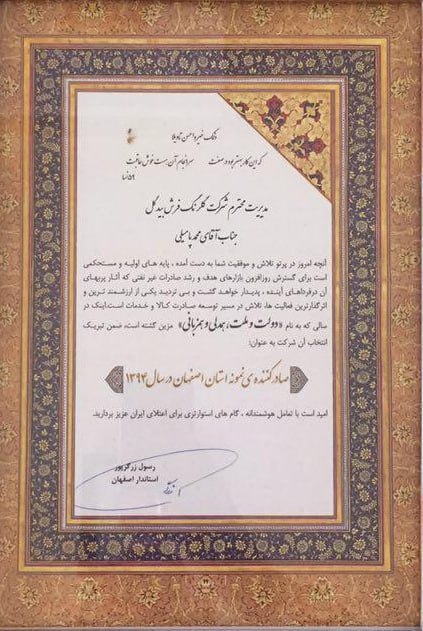 ذلک خیر و احسن تاویلا
که این کار بهتر بود در صفت سرانجام آن هست خوش عاقبت
مدیریت محترم شرکت گلرنگ فرش بیدگل
جناب آقای محمد پامیلی
آنچه امروز در پرتو تلاش و موفقیت شما به دست آمده ، پایه های اولیه و مستحکمی
است برای گسترش روزافزون بازارهای هدف و رشد صادرات غیر نفتی که آثار پربهای
آن درفرداهای آینده ، پدیدار خواهد گشت و بی تردید یکی از ارزشمند ترین و
اثرگذارترین فعالیت ها، تلاش در مسیر توسعه صادرت کالا و خدمات است.اینک در
سالی که به نام «دولت و ملت، همدلی و همزبانی» مزین گشته است، ضمن تبریک
انتخاب آن شرکت به عنوان:
صادرکننده ی نمونه استان اصفهان در سال ۱۳۹۴
امید است با تعامل هوشمندانه ، گام های استوارتری برای اعتلای ایران عزیز بردارید.
رسول زرگرپور
استاندار اصفهان